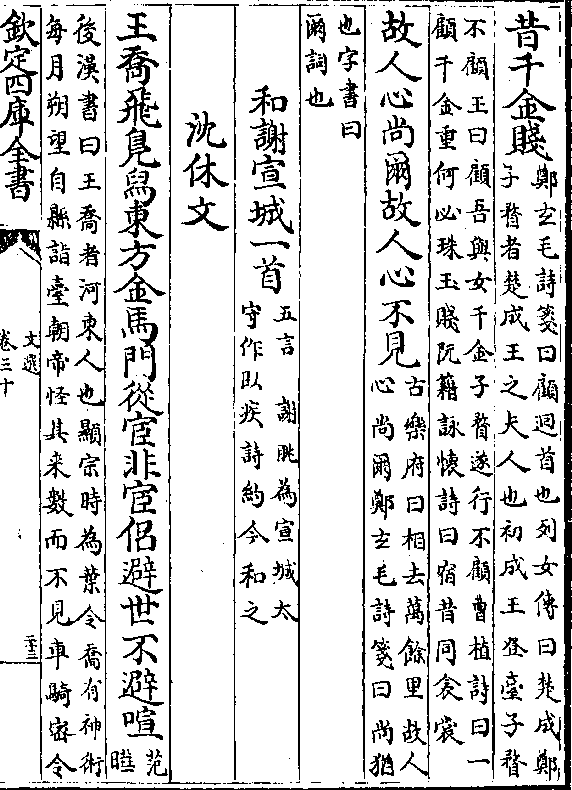 昔千金賤
鄭玄毛詩箋曰顧迴首也列女傳曰楚成鄭
子瞀者楚成王之夫人也初成王登臺子瞀
不顧王曰顧吾與女千金子瞀遂行不顧曹植詩曰一
顧千金重何必珠玉賤阮籍詠懷詩曰宿昔同衾裳
故人心尚爾故人心不見
古樂府曰相去萬餘里故人
心尚爾鄭玄毛詩箋曰尚猶
也字書曰
爾詞也
和謝宣城一首
五言 謝脁為宣城太
守作臥疾詩約今和之
沈休文
王喬飛鳧舄東方金馬門從宦非宦侶避世不避喧
范
曄
後漢書曰王喬者河東人也顯宗時為葉令喬有神術
每月朔望自縣詣臺朝帝怪其来數而不見車騎宻令
欽定四庫全書
文選
卷三十
二十三